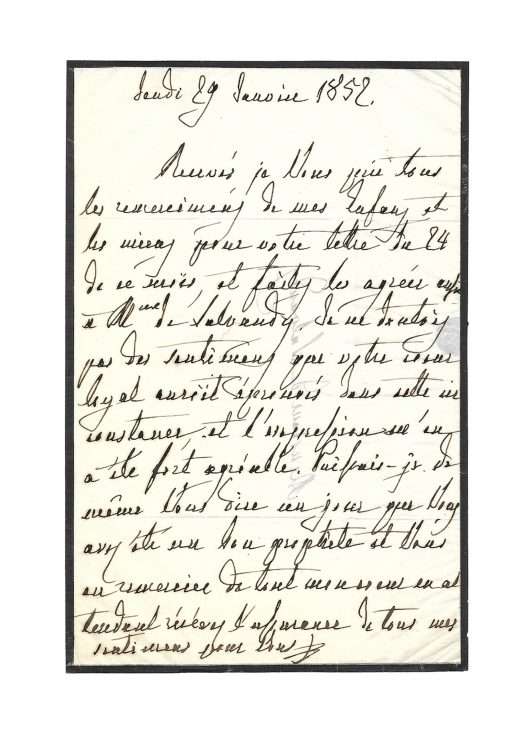 Jeudi 29 Janvier 1852.
Recevés je Vous prie tous
les remerciemens de mes Enfans et
les miens pour votre lettre du 24
de ce mois, et faites les agréer aussi
à Mme de Salvandy. Je ne doutois
pas des sentimens que votre coeur
loyal auroit éprouvés dans cette cir
constance et l'expression m'en
a été fort agréable. Puissais-je de
même Vous dire un jour que Vous
avez été un bon prophète et Vous
en remercier de tout mon coeur en at
tendant recevez l'assurance de tous mes
sentimens pour Vous